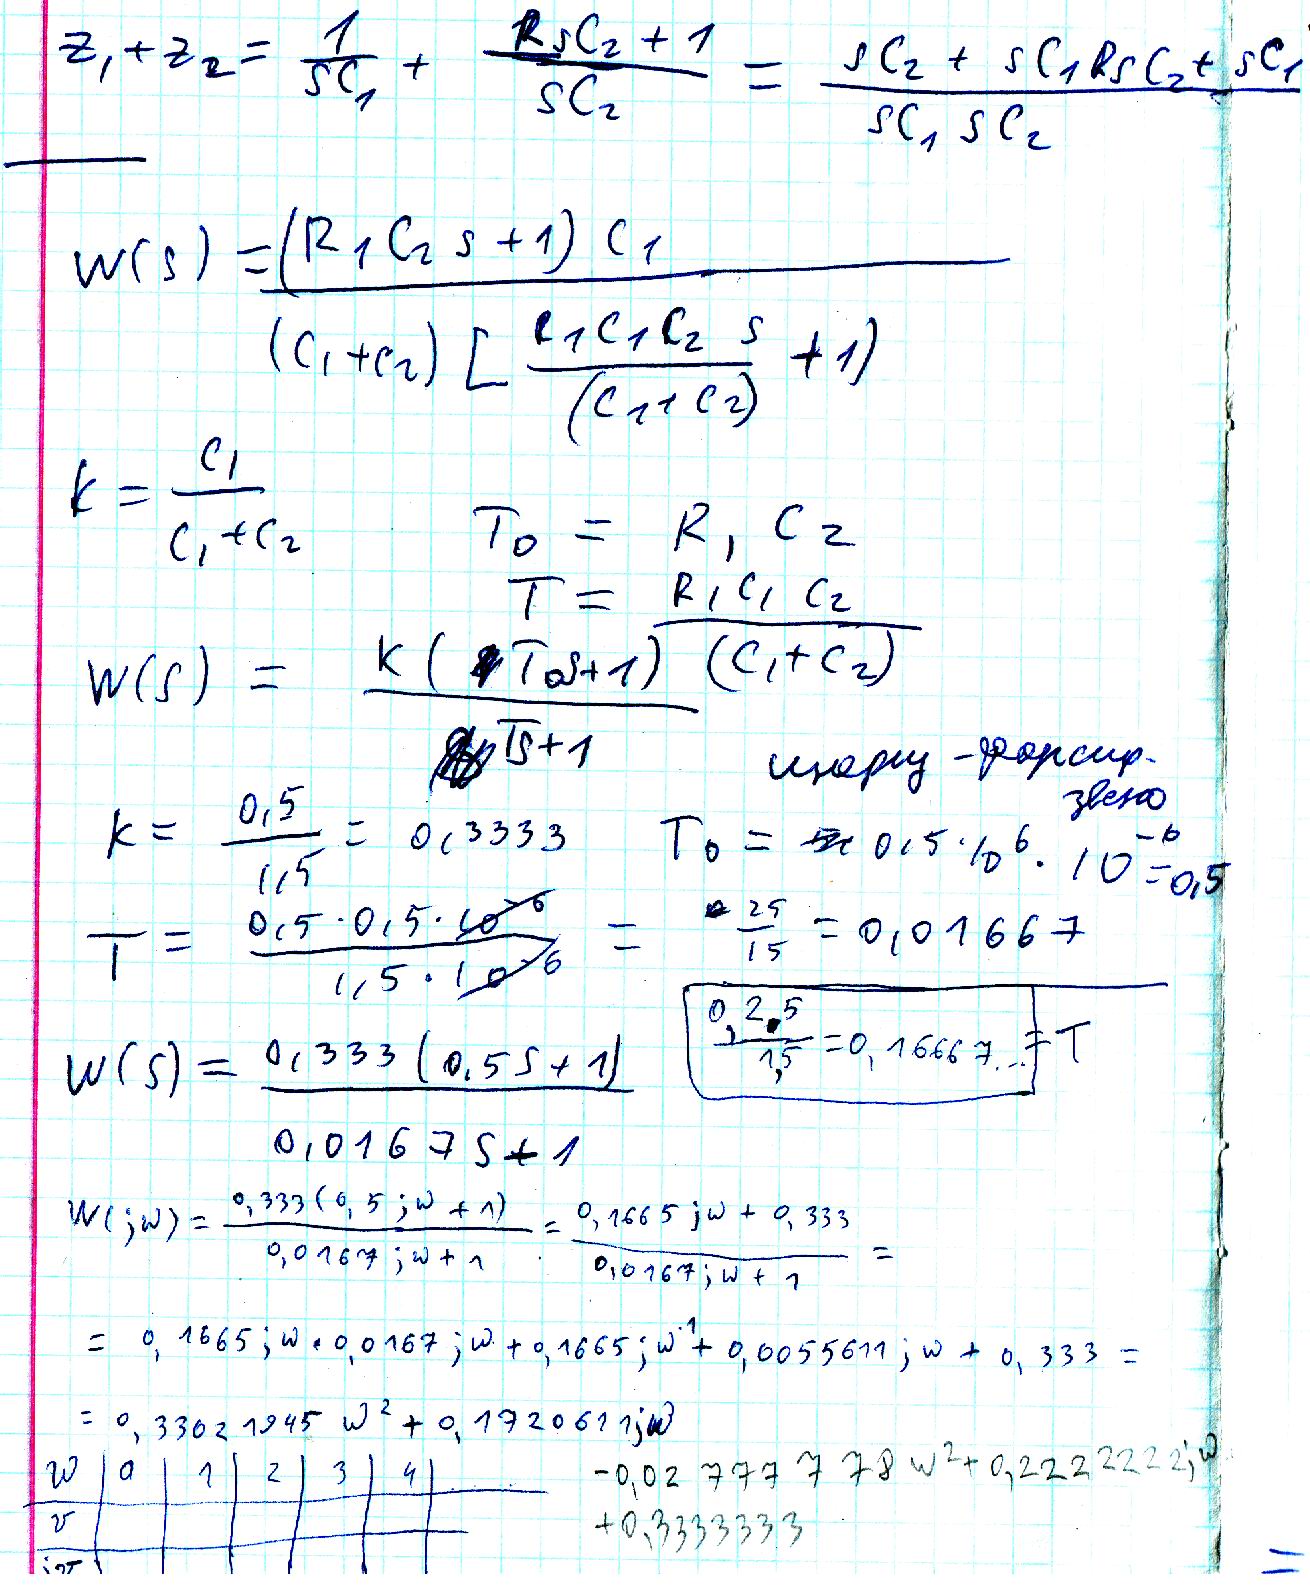 z₁ + z₂ = 1/(sC₁) + (RsC₂ + 1)/(sC₂) = (sC₂ + sC₁RsC₂ + sC₁)/(sC₁sC₂)
W(s) = (R₁C₂s + 1)C₁ / (C₁+C₂)[R₁C₁C₂s/(C₁+C₂) + 1)
k = C₁/(C₁+C₂)
T₀ = R₁C₂
T = R₁C₁C₂/(C₁+C₂)
W(s) = k(T₀s+1)/(Ts+1)
инерц-форсир.
звено
k = 0,5/1,5 = 0,3333
T₀ = 0,5·10⁶·10⁻⁶ = 0,5
T = 0,5·0,5·10⁻⁶/(1,5·10⁻⁶) = 25/15 = 0,01667
0,2.5/1,5 = 0,16667... = T
W(s) = 0,333(0,5s+1)/(0,0167s+1)
W(jw) = 0,333(0,5jw+1)/(0,0167jw+1) = (0,1665jw+0,333)/(0,0167jw+1) =
= 0,1665jw·0,0167jw+0,1665jw·1+0,0055611jw+0,333 =
= 0,33021945w²+0,1720611jw
w 0 1 2 3 4
v
jv
-0,02777778w²+0,2222222jw
+0,3333333
=